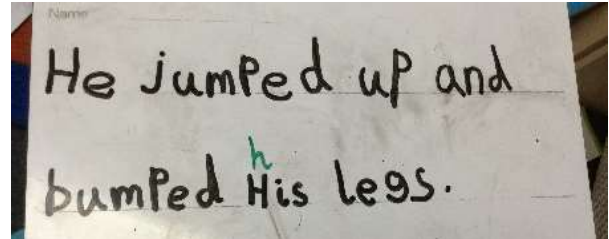 Name
He jumped up and
h
bumped His legs.